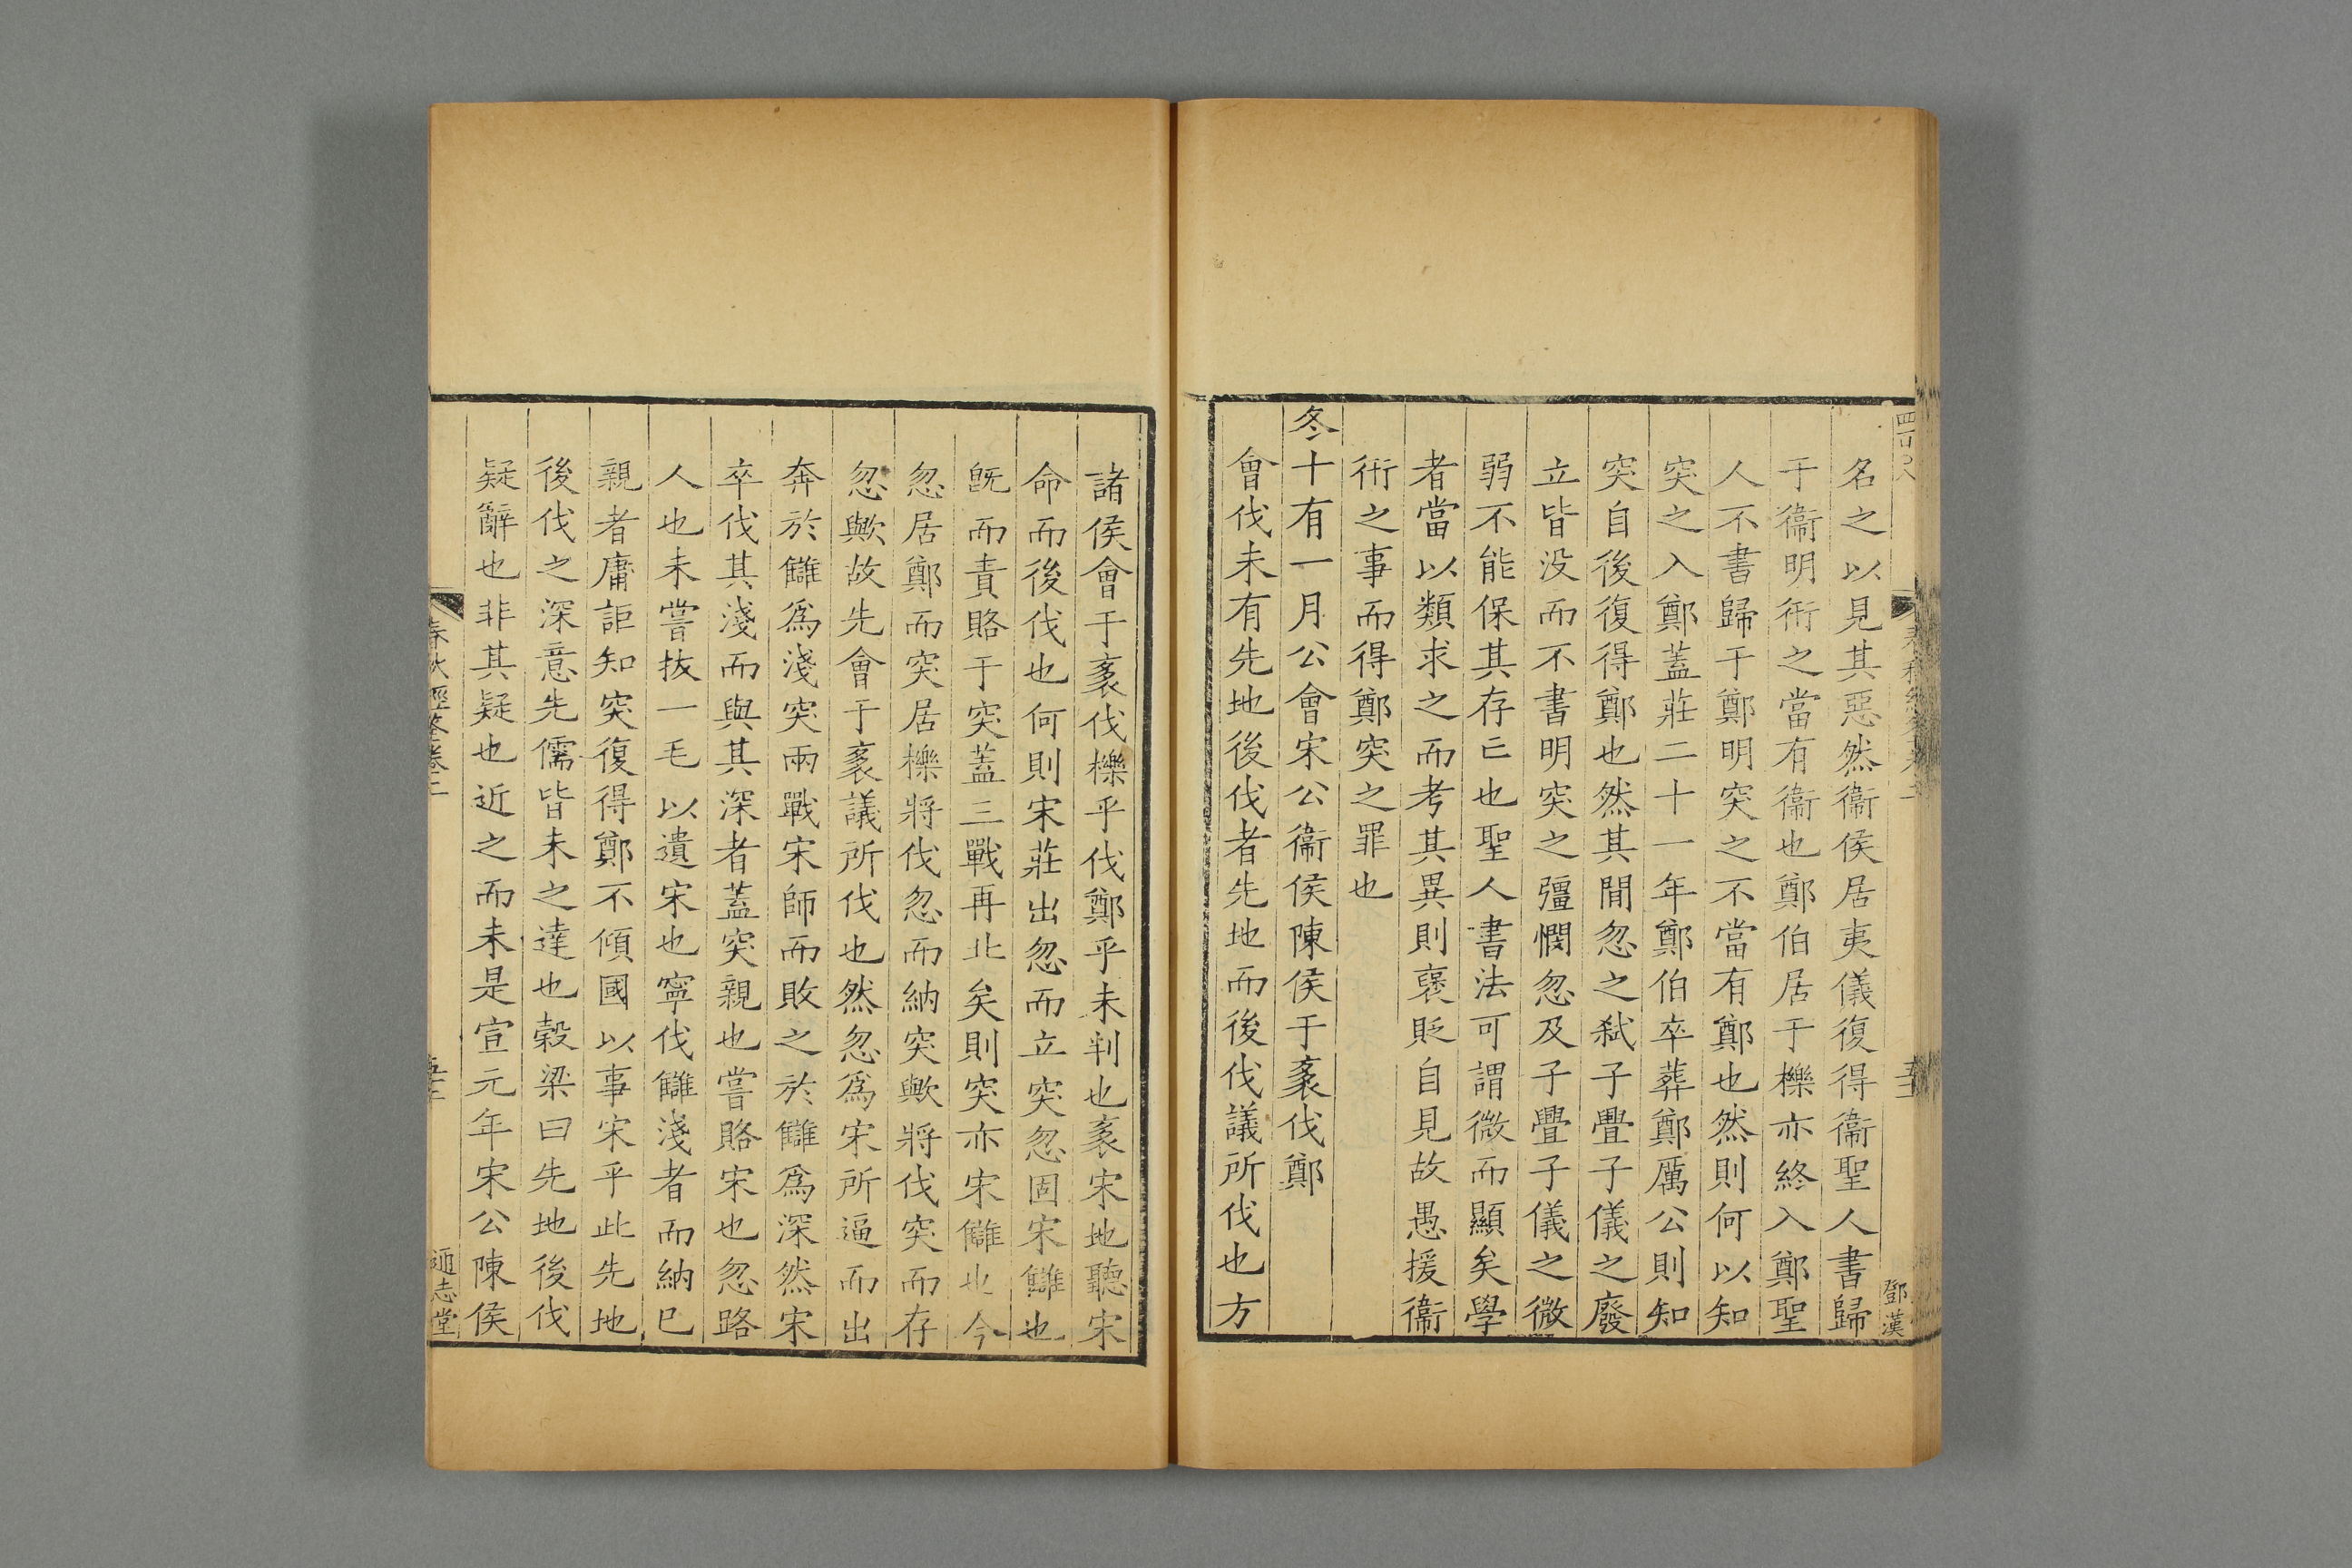 名之以見其惡然衞侯居夷儀復得衞聖人書歸
于衞明衎之當有衞也鄭伯居于櫟亦終入鄭聖
人不書歸于鄭明突之不當有鄭也然則何以知
突之入鄭蓋莊二十一年鄭伯卒葬鄭厲公則知
突自後復得鄭也然其間忽之弑子亹子儀之廢
立皆没而不書明突之彊憫忽及子亹子儀之微
弱不能保其存亡也聖人書法可謂微而顯矣學
者當以類求之而考其異則襃貶自見故愚援衞
衎之事而得鄭突之罪也
冬十有一月公會宋公衞侯陳侯于袲伐鄭
會伐未有先地後伐者先地而後伐議所伐也方
鄧漢
諸侯會于袲伐櫟乎伐鄭乎未判也袲宋地聽宋
命而後伐也何則宋莊出忽而立突忽固宋讎也
旣而責賂于突蓋三戰再北矣則突亦宋讎也今
忽居鄭而突居櫟將伐忽而納突歟將伐突而存
忽歟故先會于袲議所伐也然忽爲宋所逼而出
奔於讎爲淺突兩戰宋師而敗之於讎爲深然宋
卒伐其淺而與其深者蓋突親也嘗賂宋也忽路
人也未嘗拔一毛以遺宋也寧伐讎淺者而納巳
親者庸詎知突復得鄭不傾國以事宋乎此先地
後伐之深意先儒皆未之達也榖梁曰先地後伐
疑辭也非其疑也近之而未是宣元年宋公陳侯
春秋經筌卷二
通志堂